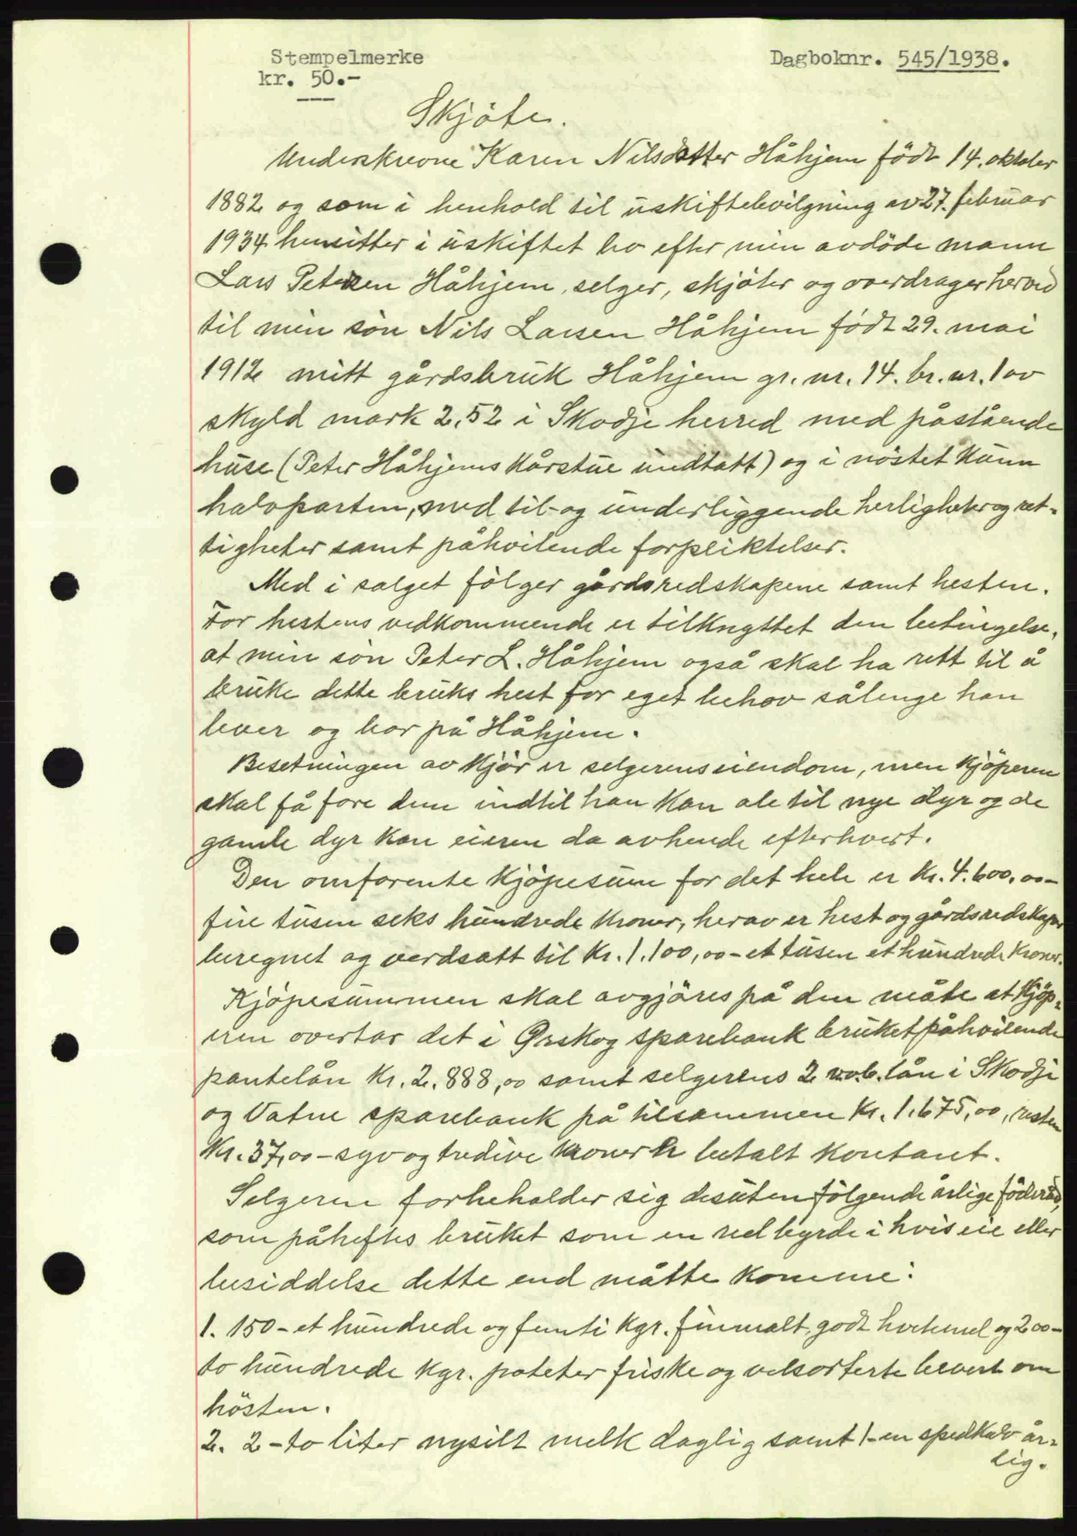 Stempelmerke
kr. 50.-
Dagboknr. 545/1938.
Skjøte.
Underskrevne Karen Nilsdatter Håhjem født 14. oktober
1882 og som i henhold til uskiftebevilgning av 27. februar
1934 hensitter i uskiftet bo efter min avdöde mann
Lars Petersen Håhjem, selger, skjöter og overdrager herved
til min sön Nils Larsen Håhjem födt 29. mai
1912 mitt gårdsbruk Håhjem gr. nr. 14. br. nr. 1 av
skyld mark 2,52 i Skodje herred med påstående
huse (Peter Håhjems Kårstue undtatt) og i nöstet kunn
halvparten, med til- og underliggende herligheter og ret-
tigheter samt påhvilende forpliktelser.
Med i salget fölger gårdsredskapene samt hesten.
For hestens vedkommende er tilknyttet den betingelse,
at min sön Peter L. Håhjem også skal ha rett til å
bruke dette bruks hest for eget behov sålenge han
lever og bor på Håhjem.
Besetningen av Kjör er selgerens eiendom, men Kjöperen
skal få fore dem indtil han kan ale til nye dyr og de
gamle dyr kan eieren da avhende efterhvert.
Den omforente Kjöpesum for det hele er kr. 4.600,00-
fire tusen seks hundrede kroner, herav er hest og gårdsredskaper
beregnet og verdsatt til kr. 1.100,00- et tusen et hundrede kroner.
Kjöpesummen skal avgjöres på den måte at Kjöp-
eren overtar det i Ørskog sparebank bruket påhvilende
pantelån kr. 2.888,00 samt selgerens 2 lån i Skodje
og Vatne sparebank på tilsammen kr. 1.675,00, resten
kr. 37,00 - syv og tredive kroner er betalt kontant.
Selgeren forbeholder sig desuten fölgende årlige föderåd,
som påheftes bruket som en red byrde i hvis eie eller
besiddelse dette end måtte komme:
1. 150 - et hundrede og femti kgr. finmalt, godt hvetemel og 200-
to hundrede kgr. poteter friske og velsorterte levert om
hösten.
2. 2 - to liter nysilt melk daglig samt 1- en spedkalv år-
lig.